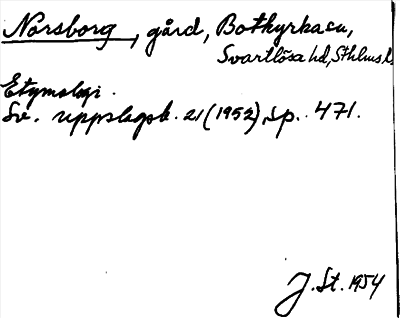 Norsborg, gård, Botkyrka sn,
Svartlösa hd, Sthlms l.
Etymologi.
Sv. uppslagsb. 21 (1952), sp. 471.
J. St. 1954